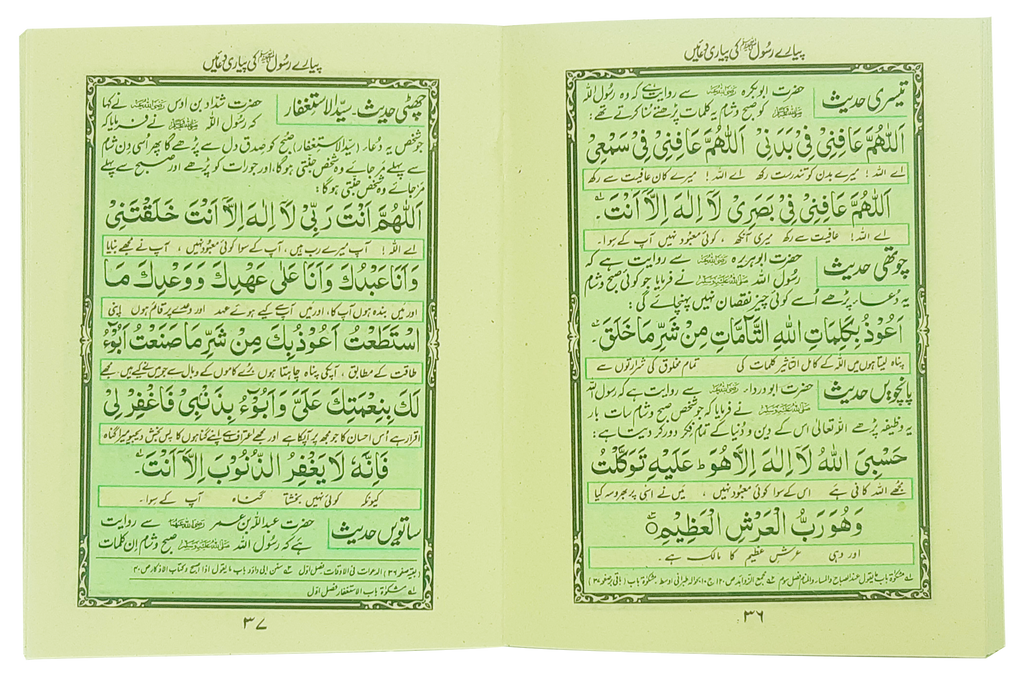 پیارے رسول ﷺ کی پیاری دعائیں
تیسری حدیث حضرت ابوبکرہ رضی اللہ عنہ سے روایت ہے کہ وہ رسول اللہ
ﷺ کو صبح و شام یہ کلمات پڑھتے سنا کرتے تھے:
اَللّٰهُمَّ عَافِنِيْ فِيْ بَدَنِيْ اَللّٰهُمَّ عَافِنِيْ فِيْ سَمْعِيْ
اے اللہ! میرے بدن کو تندرست رکھ اے اللہ! میرے کان عافیت سے رکھ
اَللّٰهُمَّ عَافِنِيْ فِيْ بَصَرِيْ لَآ اِلٰهَ اِلَّا اَنْتَ۔
اے اللہ! عافیت سے رکھ میری آنکھ ، کوئی معبود نہیں آپ کے سوا۔
چوتھی حدیث حضرت ابوہریرہ رضی اللہ عنہ سے روایت ہے کہ
رسول اللہ ﷺ نے فرمایا جو کوئی صبح و شام
یہ دعا پڑھے اُسے کوئی چیز نقصان نہیں پہنچائے گی:
اَعُوْذُ بِكَلِمَاتِ اللّٰهِ التَّآمَّاتِ مِنْ شَرِّ مَا خَلَقَ۔
پناہ لیتا ہوں میں اللہ کے کامل التاثیر کلمات کی تمام مخلوق کی شرارتوں سے
پانچویں حدیث حضرت ابودرداء رضی اللہ عنہ سے روایت ہے کہ رسول اللہ
ﷺ نے فرمایا کہ جو شخص صبح و شام سات بار
یہ وظیفہ پڑھے اللہ تعالیٰ اس کے دین و دنیا کے تمام فکر دور کر دیتا ہے:
حَسْبِيَ اللّٰهُ لَآ اِلٰهَ اِلَّا هُوَ ط عَلَيْهِ تَوَكَّلْتُ
مجھے اللہ کافی ہے اس کے سوا کوئی معبود نہیں ، میں نے اسی پر بھروسہ کیا
وَهُوَ رَبُّ الْعَرْشِ الْعَظِيْمِ
اور وہی عرش عظیم کا مالک ہے۔
۳۶
پیارے رسول ﷺ کی پیاری دعائیں
چھٹی حدیث۔ سیّد الاستغفار حضرت شداد بن اوس رضی اللہ عنہ نے کہا
کہ رسول اللہ ﷺ نے فرمایا کہ
جو شخص یہ دعاء (سیّد الاستغفار) صبح کو صدق دل سے پڑھے گا پھر اسی دن شام
سے پہلے مر جائے وہ شخص جنتی ہوگا، اور جو رات کو پڑھے اور صبح سے پہلے
مر جائے وہ شخص جنتی ہوگا:
اَللّٰهُمَّ اَنْتَ رَبِّيْ لَآ اِلٰهَ اِلَّا اَنْتَ خَلَقْتَنِيْ
اے اللہ! آپ میرے رب ہیں ، آپ کے سوا کوئی معبود نہیں ، آپ نے مجھے بنایا
وَاَنَا عَبْدُكَ وَاَنَا عَلٰى عَهْدِكَ وَوَعْدِكَ مَا
اور میں بندہ ہوں آپ کا، اور میں آپ سے کیے ہوئے عہد اور وعدے پر قائم ہوں اپنی
اسْتَطَعْتُ اَعُوْذُ بِكَ مِنْ شَرِّ مَا صَنَعْتُ اَبُوْءُ
طاقت کے مطابق ، آپ کی پناہ چاہتا ہوں بُرے کاموں کے وبال سے جو میں نے کیے ہیں، مجھے
لَكَ بِنِعْمَتِكَ عَلَيَّ وَاَبُوْءُ بِذَنْۢبِيْ فَاغْفِرْ لِيْ
اقرار ہے اُس احسان کا جو مجھ پر آپ کا ہے اور مجھے اعتراف ہے اپنے گناہوں کا پس بخش دیجیو میرا گناہ
فَاِنَّهٗ لَا يَغْفِرُ الذُّنُوْبَ اِلَّا اَنْتَ۔
کیونکہ کوئی نہیں بخشتا گناہ آپ کے سوا۔
ساتویں حدیث حضرت عبداللہ بن عمر رضی اللہ عنہما سے روایت
ہے کہ رسول اللہ ﷺ صبح و شام اِن کلمات
مشکوٰۃ باب الاستغفار فصل اوّل
۳۷